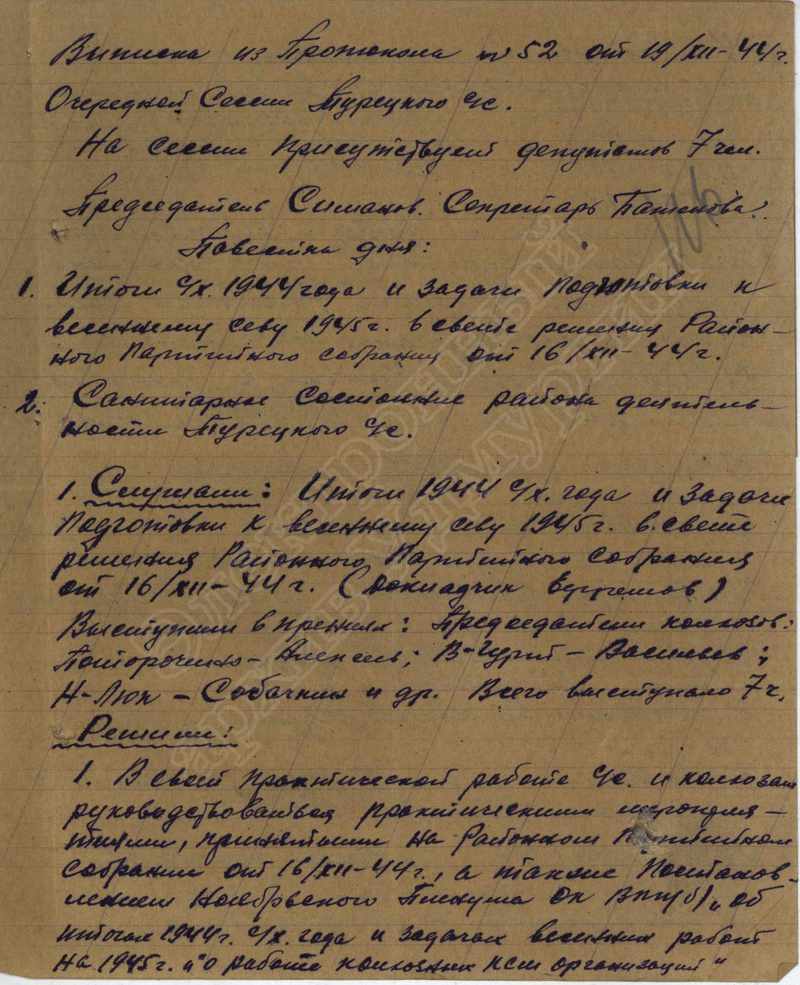 Выписка из Протокола № 52 от 19/XII-44 г.
Очередной Сессии Турецкого с/с.
На сессии присутствует депутатов 7 чел.
116
Председатель Симанов. Секретарь
Повестка дня:
1. Итоги с/х. 1944 года и задачи подготовки к
весеннему севу 1945 г. в свете решения Район-
ного Партийного собрания от 16/XII-44 г.
2. Санитарное состояние района деятель-
ности Турецкого с/с.
1. Слушали: Итоги 1944 с/х. года и задачи
подготовки к весеннему севу 1945 г. в свете
решения Районного Партийного собрания
от 16/XII-44 г. (докладчик
Выступили в прениях: Председатели колхозов:
Алексеев; В-Чурит – Васильев;
Н-Люк – Собачкин и др. Всего выступало 7 ч.
Решили:
1. В своей практической работе с/с. и колхозам
руководствоваться практическими мероприя-
тиями, принятыми на Районном Партийном
собрании от 16/XII-44 г., а также Постанов-
лением Ноябрьского Пленума ОК ВКП(б) „об
итогах 1944 г. с/х. года и задачах весенних работ
на 1945 г. и „о работе колхозных КСМ организаций"